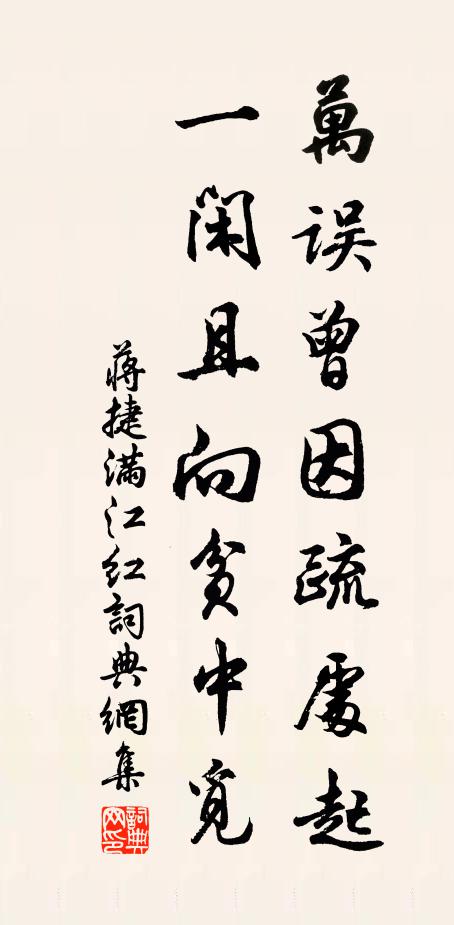 萬误曾因疏處起
一閑且向貧中覓
蔣捷滿江红詞典網集
詞典网印